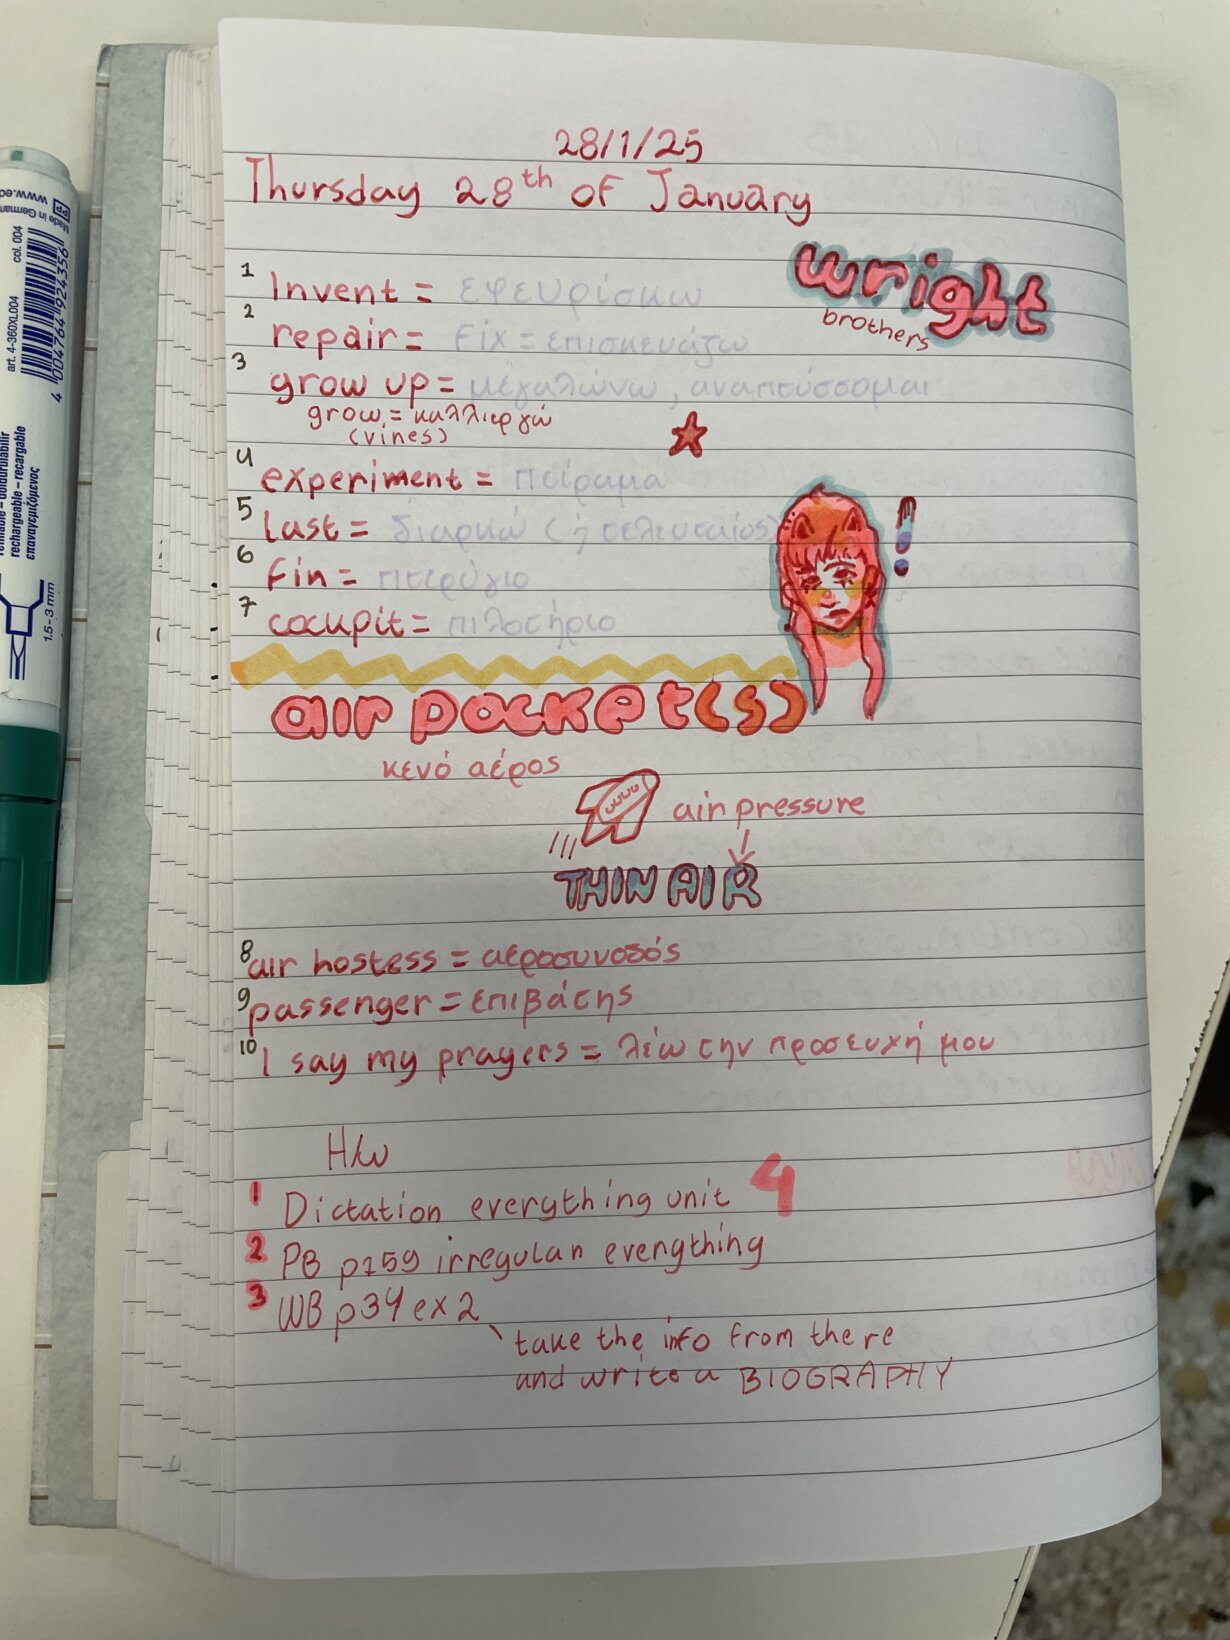 28/1/25
Thursday 28th of January
wright
brothers
1 Invent = εφευρίσκω
2 repair = fix = επισκευάζω
3 grow up = μεγαλώνω, αναπτύσσομαι
grow = καλλιεργώ
(vines)
4 experiment = πείραμα
5 last = διαρκώ (ή τελευταίος)
6 fin = πτερύγιο
7 cockpit = πιλοτήριο
!
air pocket(s)
κενό αέρος
air pressure
THIN AIR
8 air hostess = αεροσυνοδός
9 passenger = επιβάτης
10 I say my prayers = λέω την προσευχή μου
H/w
1 Dictation everything unit 4
2 PB p159 irregular everything
3 WB p34 ex 2
take the info from there
and write a BIOGRAPHY
Made in German
PP
art. 4-360XL004
col. 004
4 004764 924356
rechargeable - recargable
επαναγεμιζόμενος
1.5 - 3 mm